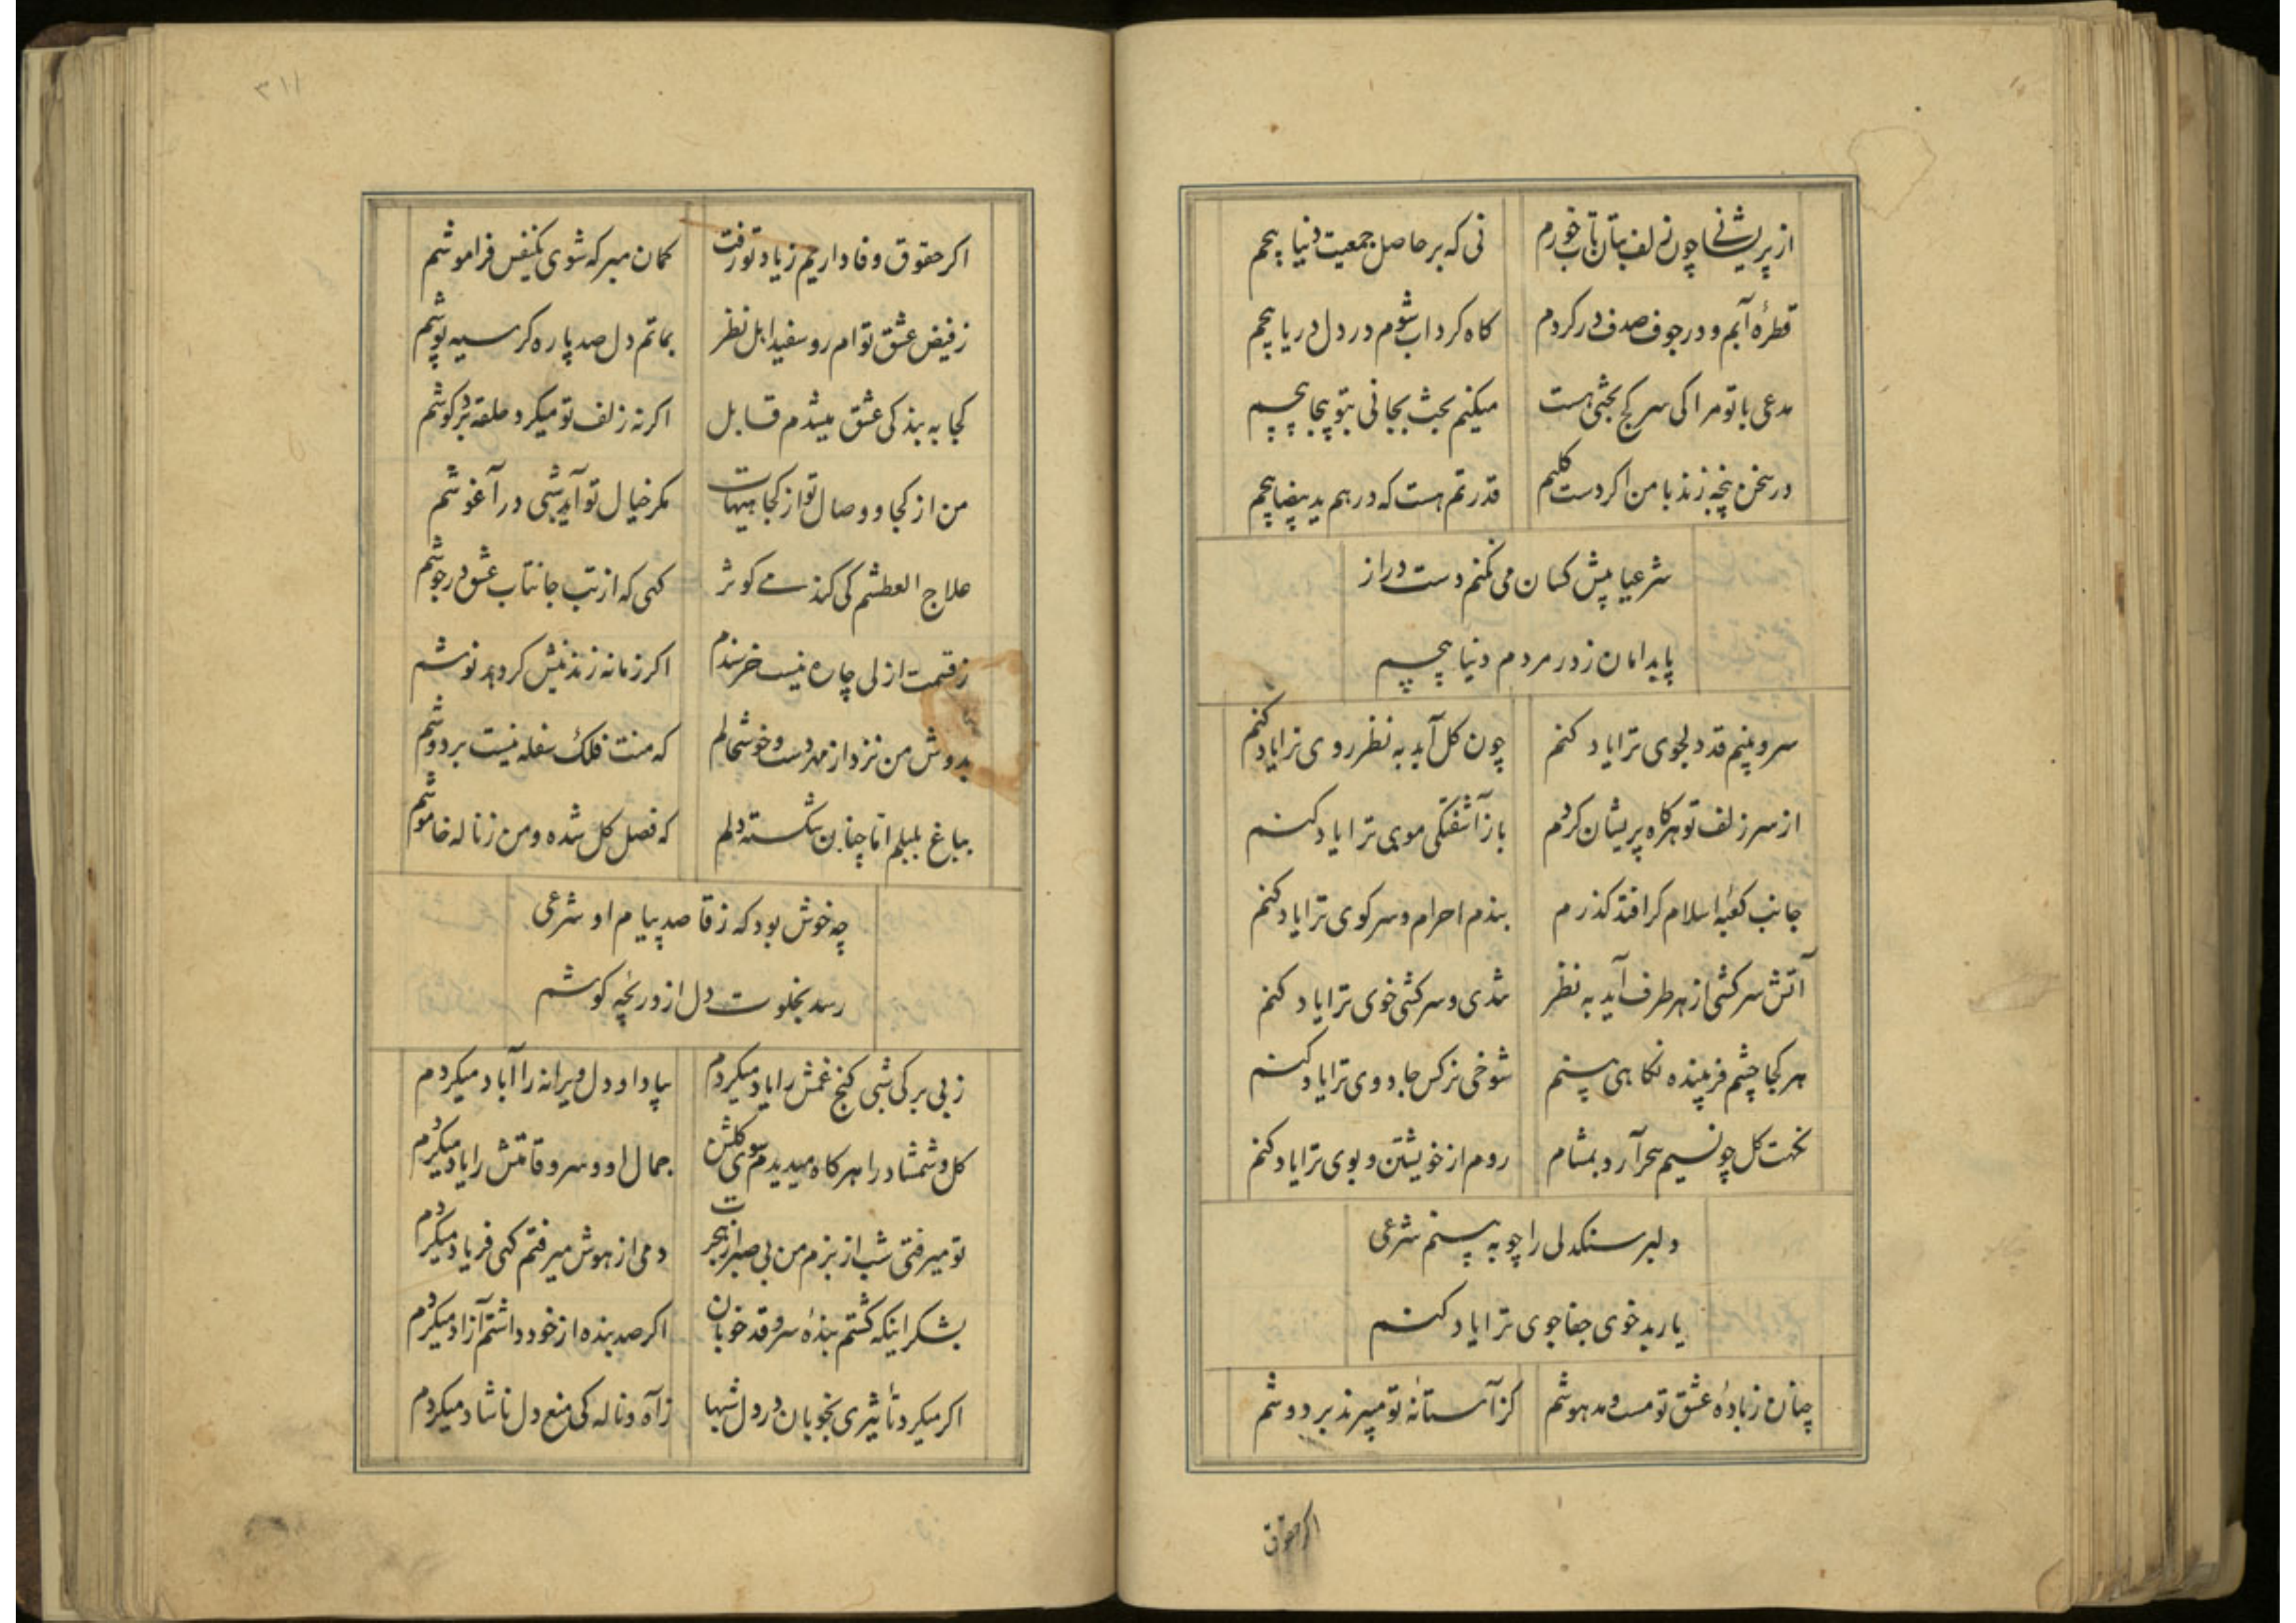 از پریشانی چون زلف بتان تاب خورم نی که بر حاصل جمعیت دنیا پیچم
قطرهٔ آبم و در جوف صدف در کردم کاه کرداب شوم در دل دریا پیچم
مدعی با تو مرا کی سر کج بحثی هست میکنم بحث بجانی بتو بیجا پیچم
در سخن پنجه زند با من اکر دست کلیم قدرتم هست که در هم ید بیضا پیچم
شرعیا پیش کسان می نکنم دست دراز
پا بدامان ز در مردم دنیا پیچم
سرو بینم قد دلجوی ترا یاد کنم چون کل آید به نظر روی ترا یاد کنم
از سر زلف تو هر کاه پریشان کردم باز آشفتکی موی ترا یاد کنم
جانب کعبهٔ اسلام کر افتد کذرم بندم احرام و سر کوی ترا یاد کنم
آتش سرکشی از هر طرف آید به نظر تندی و سرکشی خوی ترا یاد کنم
هر کجا چشم فریبنده نکاهی بینم شوخی نرکس جادوی ترا یاد کنم
نکهت کل چو نسیم سحر آرد بمشام روم از خویشتن و بوی ترا یاد کنم
دلبر سنکدلی را چو به بینم شرعی
یار بد خوی جفا جوی ترا یاد کنم
چنان ز بادهٔ عشق تو مست و مدهوشم کز آستانهٔ تو میبرند بر دوشم
اکر حقوق
٣١١
اکر حقوق وفاداریم ز یاد تو رفت کمان مبر که شوی یکنفس فراموشم
ز فیض عشق توام رو سفید اهل نظر بماتم دل صد پاره کر سیه پوشم
کجا به بندکی عشق میشدم قابل اکر نه زلف تو میکرد حلقه در کوشم
من از کجا و وصال تو از کجا هیهات مکر خیال تو آید شبی در آغوشم
علاج العطشم کی کند می کوثر کهی که از تب جانتاب عشق در جوشم
ز قسمت ازلی چاره نیست خرسندم اکر زمانه زند نیش کر دهد نوشم
بدوش من نزد از مهر دست و خوشحالم که منت فلک سفله نیست بر دوشم
بباغ بلبلم اما چنان شکسته دلم که فصل کل شده و من ز ناله خاموشم
چه خوش بود که ز قاصد پیام او شرعی
رسد بخلوت دل از دریچه کوشم
ز بی برکی شبی کنج غمش را یاد میکردم بیاد او دل ویرانه را آباد میکردم
کل و شمشاد را هر کاه میدیدم سوی کلشن جمال او و سرو قامتش را یاد میکردم
تو میرفتی شب از بزم من بی صبر از هجرت دمی از هوش میرفتم کهی فریاد میکردم
بشکر اینکه کشتم بندهٔ سرو قد خوبان اکر صد بنده از خود داشتم آزاد میکردم
اکر میکرد تأثیری بخوبان درد دل شبها ز آه و ناله کی منع دل ناشاد میکردم